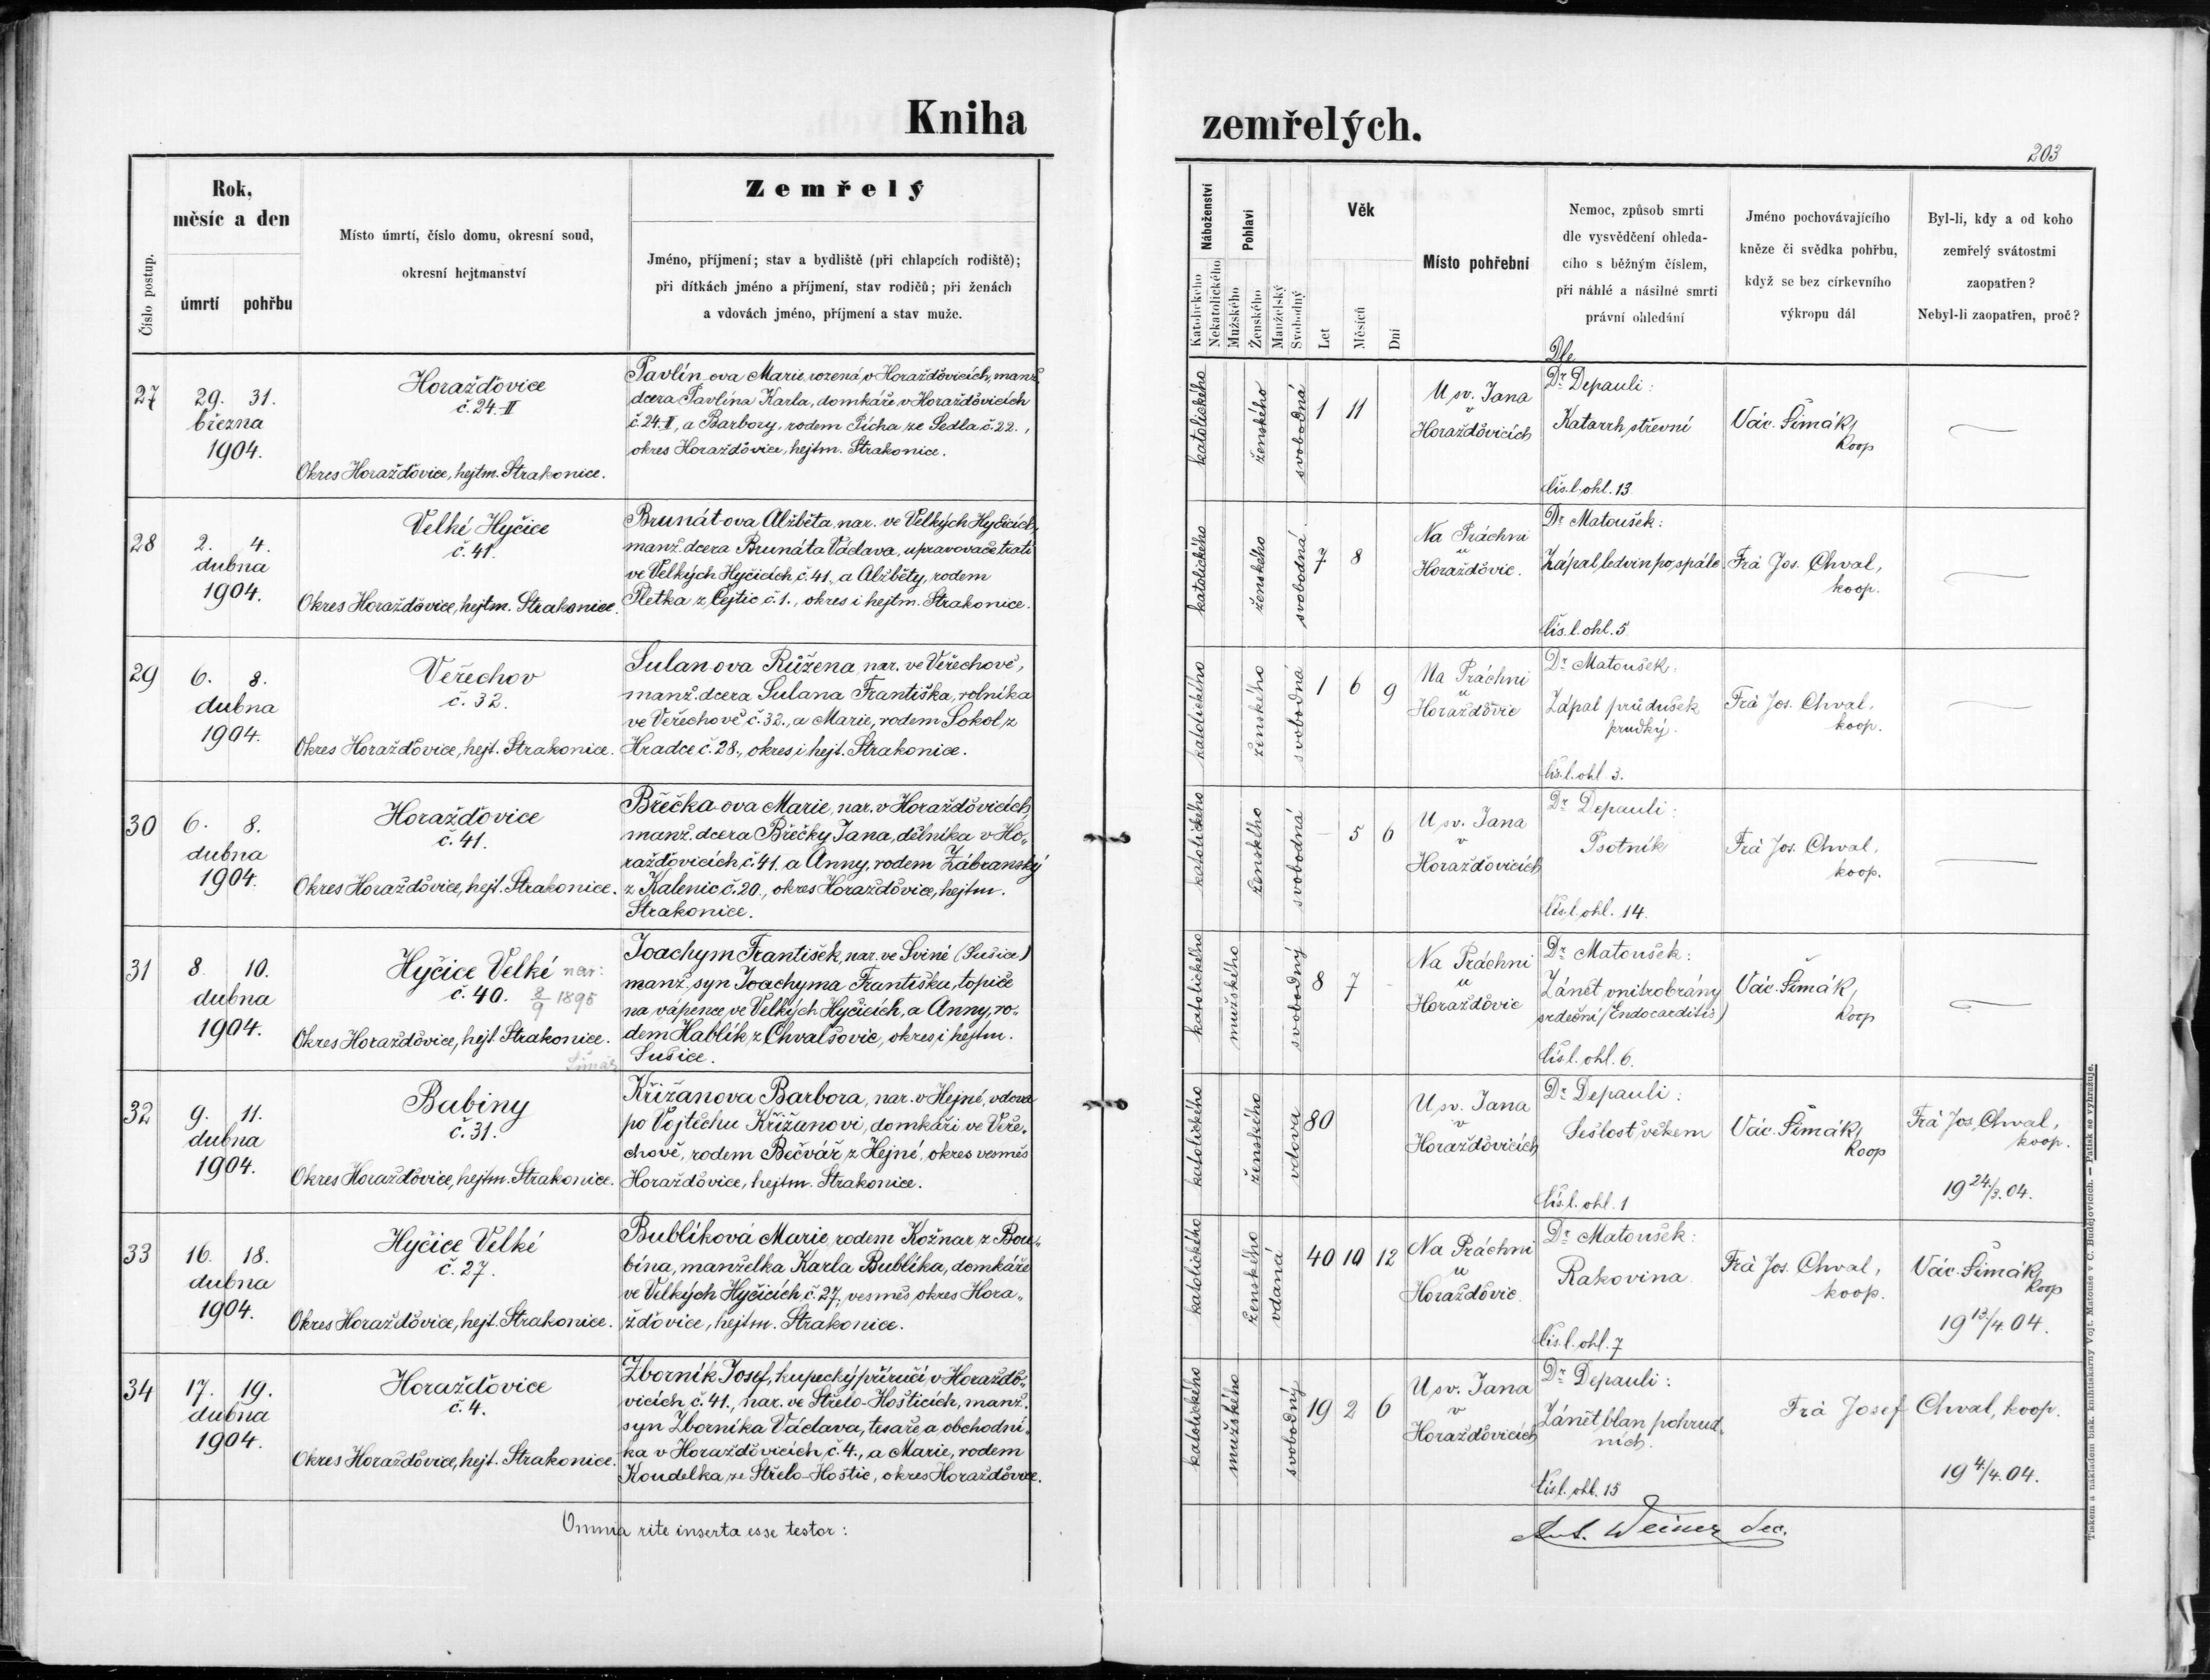 Kniha zemřelých.
203
Číslo postup.
Rok,
měsíc a den
úmrtí
pohřbu
Místo úmrtí, číslo domu, okresní soud,
okresní hejtmanství
Zemřelý
Jméno, příjmení; stav a bydliště (při chlapcích rodiště);
při dítkách jméno a příjmení, stav rodičů; při ženách
a vdovách jméno, příjmení a stav muže.
Náboženství
Katolického
Nekatolického
Pohlaví
Mužského
Ženského
Manželský
Svobodný
Věk
Let
Měsíců
Dní
Místo pohřební
Nemoc, způsob smrti
dle vysvědčení ohleda-
cího s běžným číslem,
při náhlé a násilné smrti
právní ohledání
Jméno pochovávajícího
kněze či svědka pohřbu,
když se bez církevního
výkropu dál
Byl-li, kdy a od koho
zemřelý svátostmi
zaopatřen?
Nebyl-li zaopatřen, proč?
27
29. 31.
března
1904.
Horažďovice
č. 24-II
Okres Horažďovice, hejtm. Strakonice.
Pavlín ova Marie, rozená v Horažďovicích, manž.
dcera Pavlína Karla, domkáře v Horažďovicích
č. 24-II, a Barbory, rodem Pícha ze Sedla č. 22.,
okres Horažďovice, hejtm. Strakonice.
katolického
ženského
svobodná
1 11
U sv. Jana
v
Horažďovicích
Dle
Dr. Depauli:
Katarrh střevní
Čís. l. ohl. 13
Vác. Šimák,
koop
28
2. 4.
dubna
1904.
Velké Hyčice
č. 41.
Okres Horažďovice, hejtm. Strakonice.
Brunát-ova Alžběta, nar. ve Velkých Hyčicích,
manž. dcera Brunáta Václava, upravovače trati
ve Velkých Hyčicích č. 41., a Alžběty, rodem
Pletka z Cejtic č. 1., okres i hejtm. Strakonice.
katolického
ženského
svobodná
7 8
Na Práchni
u
Horažďovic.
Dr. Matoušek:
Zápal ledvin po spále
Čís. l. ohl. 5
Frá Jos. Chval,
koop.
29
6. 8.
dubna
1904.
Veřechov
č. 32.
Okres Horažďovice, hejt. Strakonice.
Sulan ova Růžena, nar. ve Veřechově,
manž. dcera Sulana Františka, rolníka
ve Veřechově č. 32., a Marie, rodem Sokol z
Hradce č. 28., okres i hejt. Strakonice.
katolického
ženského
svobodná
1 6 9
Na Práchni
u
Horažďovic
Dr. Matoušek.
Zápal průdušek
prudký.
Čís. l. ohl. 3.
Frá Jos. Chval,
koop.
30
6. 8.
dubna
1904.
Horažďovice
č. 41.
Okres Horažďovice, hejt. Strakonice.
Břečka-ova Marie, nar. v Horažďovicích,
manž. dcera Břečky Jana, dělníka v Ho„
ražďovicích č. 41. a Anny, rodem Zábranský
z Kalenic č. 20., okres Horažďovice, hejtm.
Strakonice.
katolického
ženského
svobodná
– 5 6
U sv. Jana
v
Horažďovicích
Dr. Depauli:
Psotník
Čís. l. ohl. 14.
Frá Jos. Chval,
koop.
31
8. 10.
dubna
1904.
Hyčice Velké nar:
č. 40. 8/9 1895
Okres Horažďovice, hejt. Strakonice.
Šimák
Joachym František, nar. ve Sviné (Sušice)
manž. syn Joachyma Františku, topiče
na vápence ve Velkých Hyčicích, a Anny, ro„
dem Hablík z Chvalšovic, okres i hejtm.
Sušice.
katolického
mužského
svobodný
8 7 -
Na Práchni
u
Horažďovic
Dr. Matoušek:
Zánět vnitrobrány
srdeční (Endocarditis)
Čís. l. ohl. 6.
Vác. Šimák,
koop
32
9. 11.
dubna
1904.
Babiny
č. 31.
Okres Horažďovice, hejtm. Strakonice.
Křižanova Barbora, nar. v Hejné, vdova
po Vojtěchu Křižanovi, domkáři ve Veře„
chově, rodem Bečvář z Hejné, okres vesměs
Horažďovice, hejtm. Strakonice.
katolického
ženského
vdova
80
U sv. Jana
v
Horažďovicích
Dr. Depauli:
Sešlost věkem
Čís. l. ohl. 1
Vác. Šimák,
koop
Frá Jos. Chval,
koop.
19 24./3. 04.
33
16. 18.
dubna
1904.
Hyčice Velké
č. 27.
Okres Horažďovice, hejt. Strakonice.
Bublíková Marie, rodem Kožnar z Bou„
bína, manželka Karla Bublíka, domkáře
ve Velkých Hyčicích č. 27, vesměs okres Hora„
žďovice, hejtm. Strakonice.
katolického
ženského
vdaná
40 10 12
Na Práchni
u
Horažďovic.
Dr. Matoušek:
Rakovina
Čís. l. ohl. 7
Frá Jos. Chval,
koop.
Vác. Šimák,
koop
19 13./4. 04.
34
17. 19.
dubna
1904.
Horažďovice
č. 4.
Okres Horažďovice, hejt. Strakonice.
Zborník Josef, kupecký příručí v Horažďo„
vicích č. 41., nar. ve Střelo-Hošticích, manž.
syn Zborníka Václava, tesaře a obchodní„
ka v Horažďovicích č. 4., a Marie, rodem
Koudelka ze Střelo-Hoštic, okres Horažďovice.
katolického
mužského
svobodný
19 2 6
U sv. Jana
v
Horažďovicích
Dr. Depauli:
Zánět blan pohrud„
ních.
Čís. l. ohl. 15
Frá Josef Chval, koop.
19 4./4. 04.
Omnia rite inserta esse testor:
Ant. Weiner dec.
Tiskem a nákladem bisk. knihtiskárny Vojt. Matouše v Č. Budějovicích. — Patisk se vyhražuje.